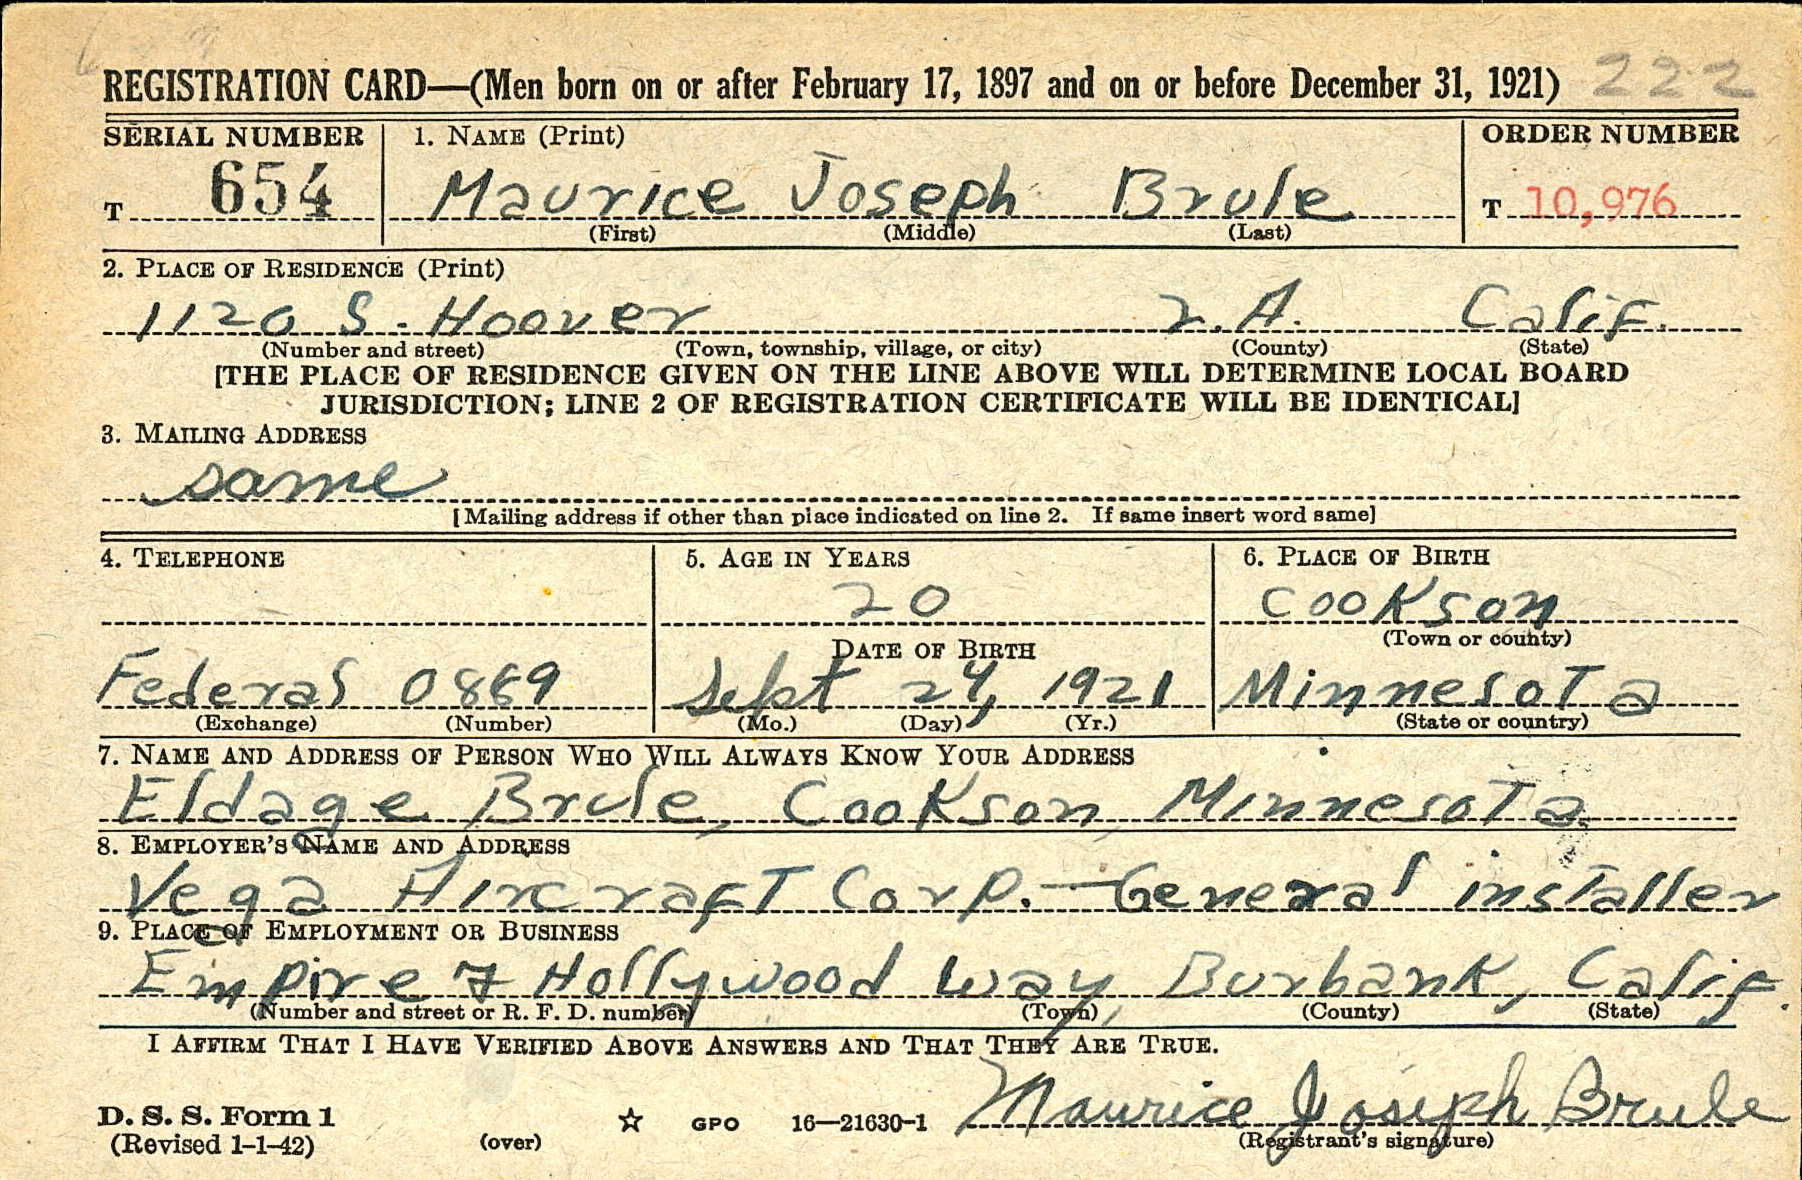 REGISTRATION CARD—(Men born on or after February 17, 1897 and on or before December 31, 1921) 222
SERIAL NUMBER 1. NAME (Print) ORDER NUMBER
T 654 Maurice Joseph Brule T 10,976
(First) (Middle) (Last)
2. PLACE OF RESIDENCE (Print)
1120 S. Hoover L.A. Calif.
(Number and street) (Town, township, village, or city) (County) (State)
[THE PLACE OF RESIDENCE GIVEN ON THE LINE ABOVE WILL DETERMINE LOCAL BOARD
JURISDICTION; LINE 2 OF REGISTRATION CERTIFICATE WILL BE IDENTICAL]
3. MAILING ADDRESS
same
[Mailing address if other than place indicated on line 2. If same insert word same]
4. TELEPHONE 5. AGE IN YEARS 6. PLACE OF BIRTH
20 Cookson
DATE OF BIRTH (Town or county)
Federal 0869 Sept 24, 1921 Minnesota
(Exchange) (Number) (Mo.) (Day) (Yr.) (State or country)
7. NAME AND ADDRESS OF PERSON WHO WILL ALWAYS KNOW YOUR ADDRESS
Eldage Brule, Cookson, Minnesota
8. EMPLOYER'S NAME AND ADDRESS
Vega Aircraft Corp. — General installer
9. PLACE OF EMPLOYMENT OR BUSINESS
Empire & Hollywood Way, Burbank, Calif.
(Number and street or R. F. D. number) (Town) (County) (State)
I AFFIRM THAT I HAVE VERIFIED ABOVE ANSWERS AND THAT THEY ARE TRUE.
Maurice Joseph Brule
D. S. S. Form 1 ☆ GPO 16—21630-1
(Revised 1-1-42) (over) (Registrant's signature)